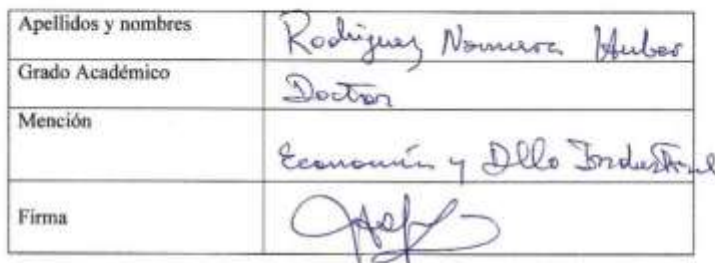 Apellidos y nombres
Rodriguez Nomura Huber
Grado Académico
Doctor
Mención
Economía y Dllo Industrial
Firma